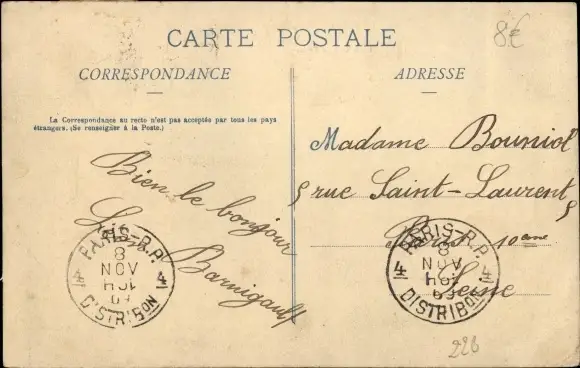 CARTE POSTALE
8€
CORRESPONDANCE
ADRESSE
La Correspondance au recto n'est pas acceptée par tous les pays
étrangers. (Se renseigner à la Poste.)
Bien le bonjour
Barnigault
Madame Bouniol
5 rue Saint-Laurent 5
Paris 10eme
Seine
PARIS-R.P.
8
NOV
4 4
DISTRIBON
PARIS-R.P.
8
NOV
4 4
DISTRIBON
226